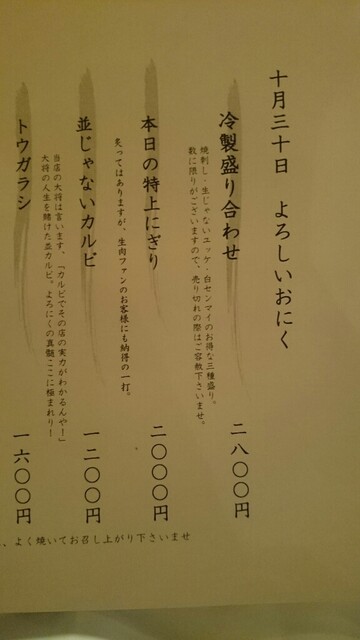 十月三十日　よろしいおにく
冷製盛り合わせ　二八〇〇円
焼刺し・生じゃないユッケ・白センマイのお得な三種盛り。
数に限りがございますので、売り切れの際はご容赦下さいませ。
本日の特上にぎり　二〇〇〇円
炙ってはありますが、生肉ファンのお客様にも納得の一打。
並じゃないカルビ　一二〇〇円
当店の大将は言います、「カルビでその店の実力がわかるんや！」
大将の人生を賭けた並カルビ。よろにくの真髄ここに極まれり！
トウガラシ　一六〇〇円
、よく焼いてお召し上がり下さいませ